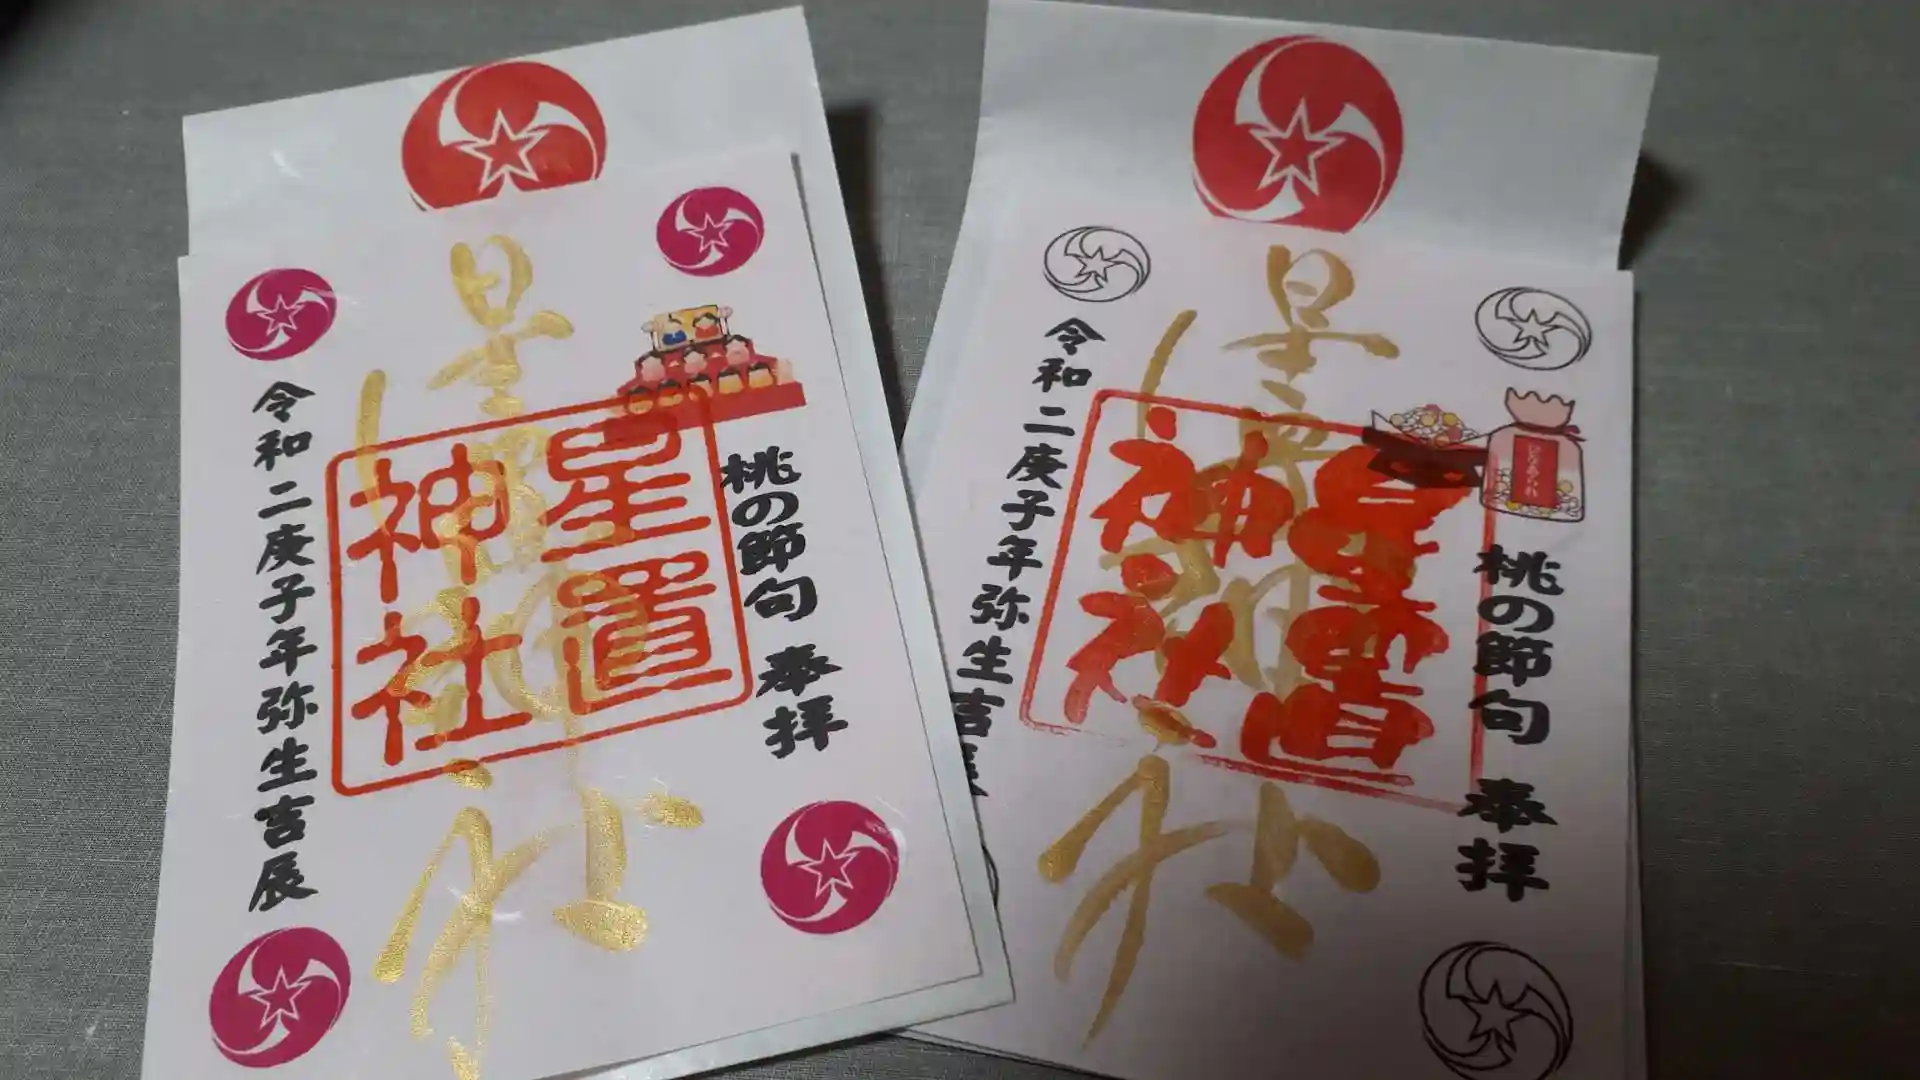 桃の節句 奉拝
星置神社
星置
神社
令和二庚子年弥生吉辰
ひなあられ
桃の節句 奉拝
星置神社
星置
神社
令和二庚子年弥生吉辰